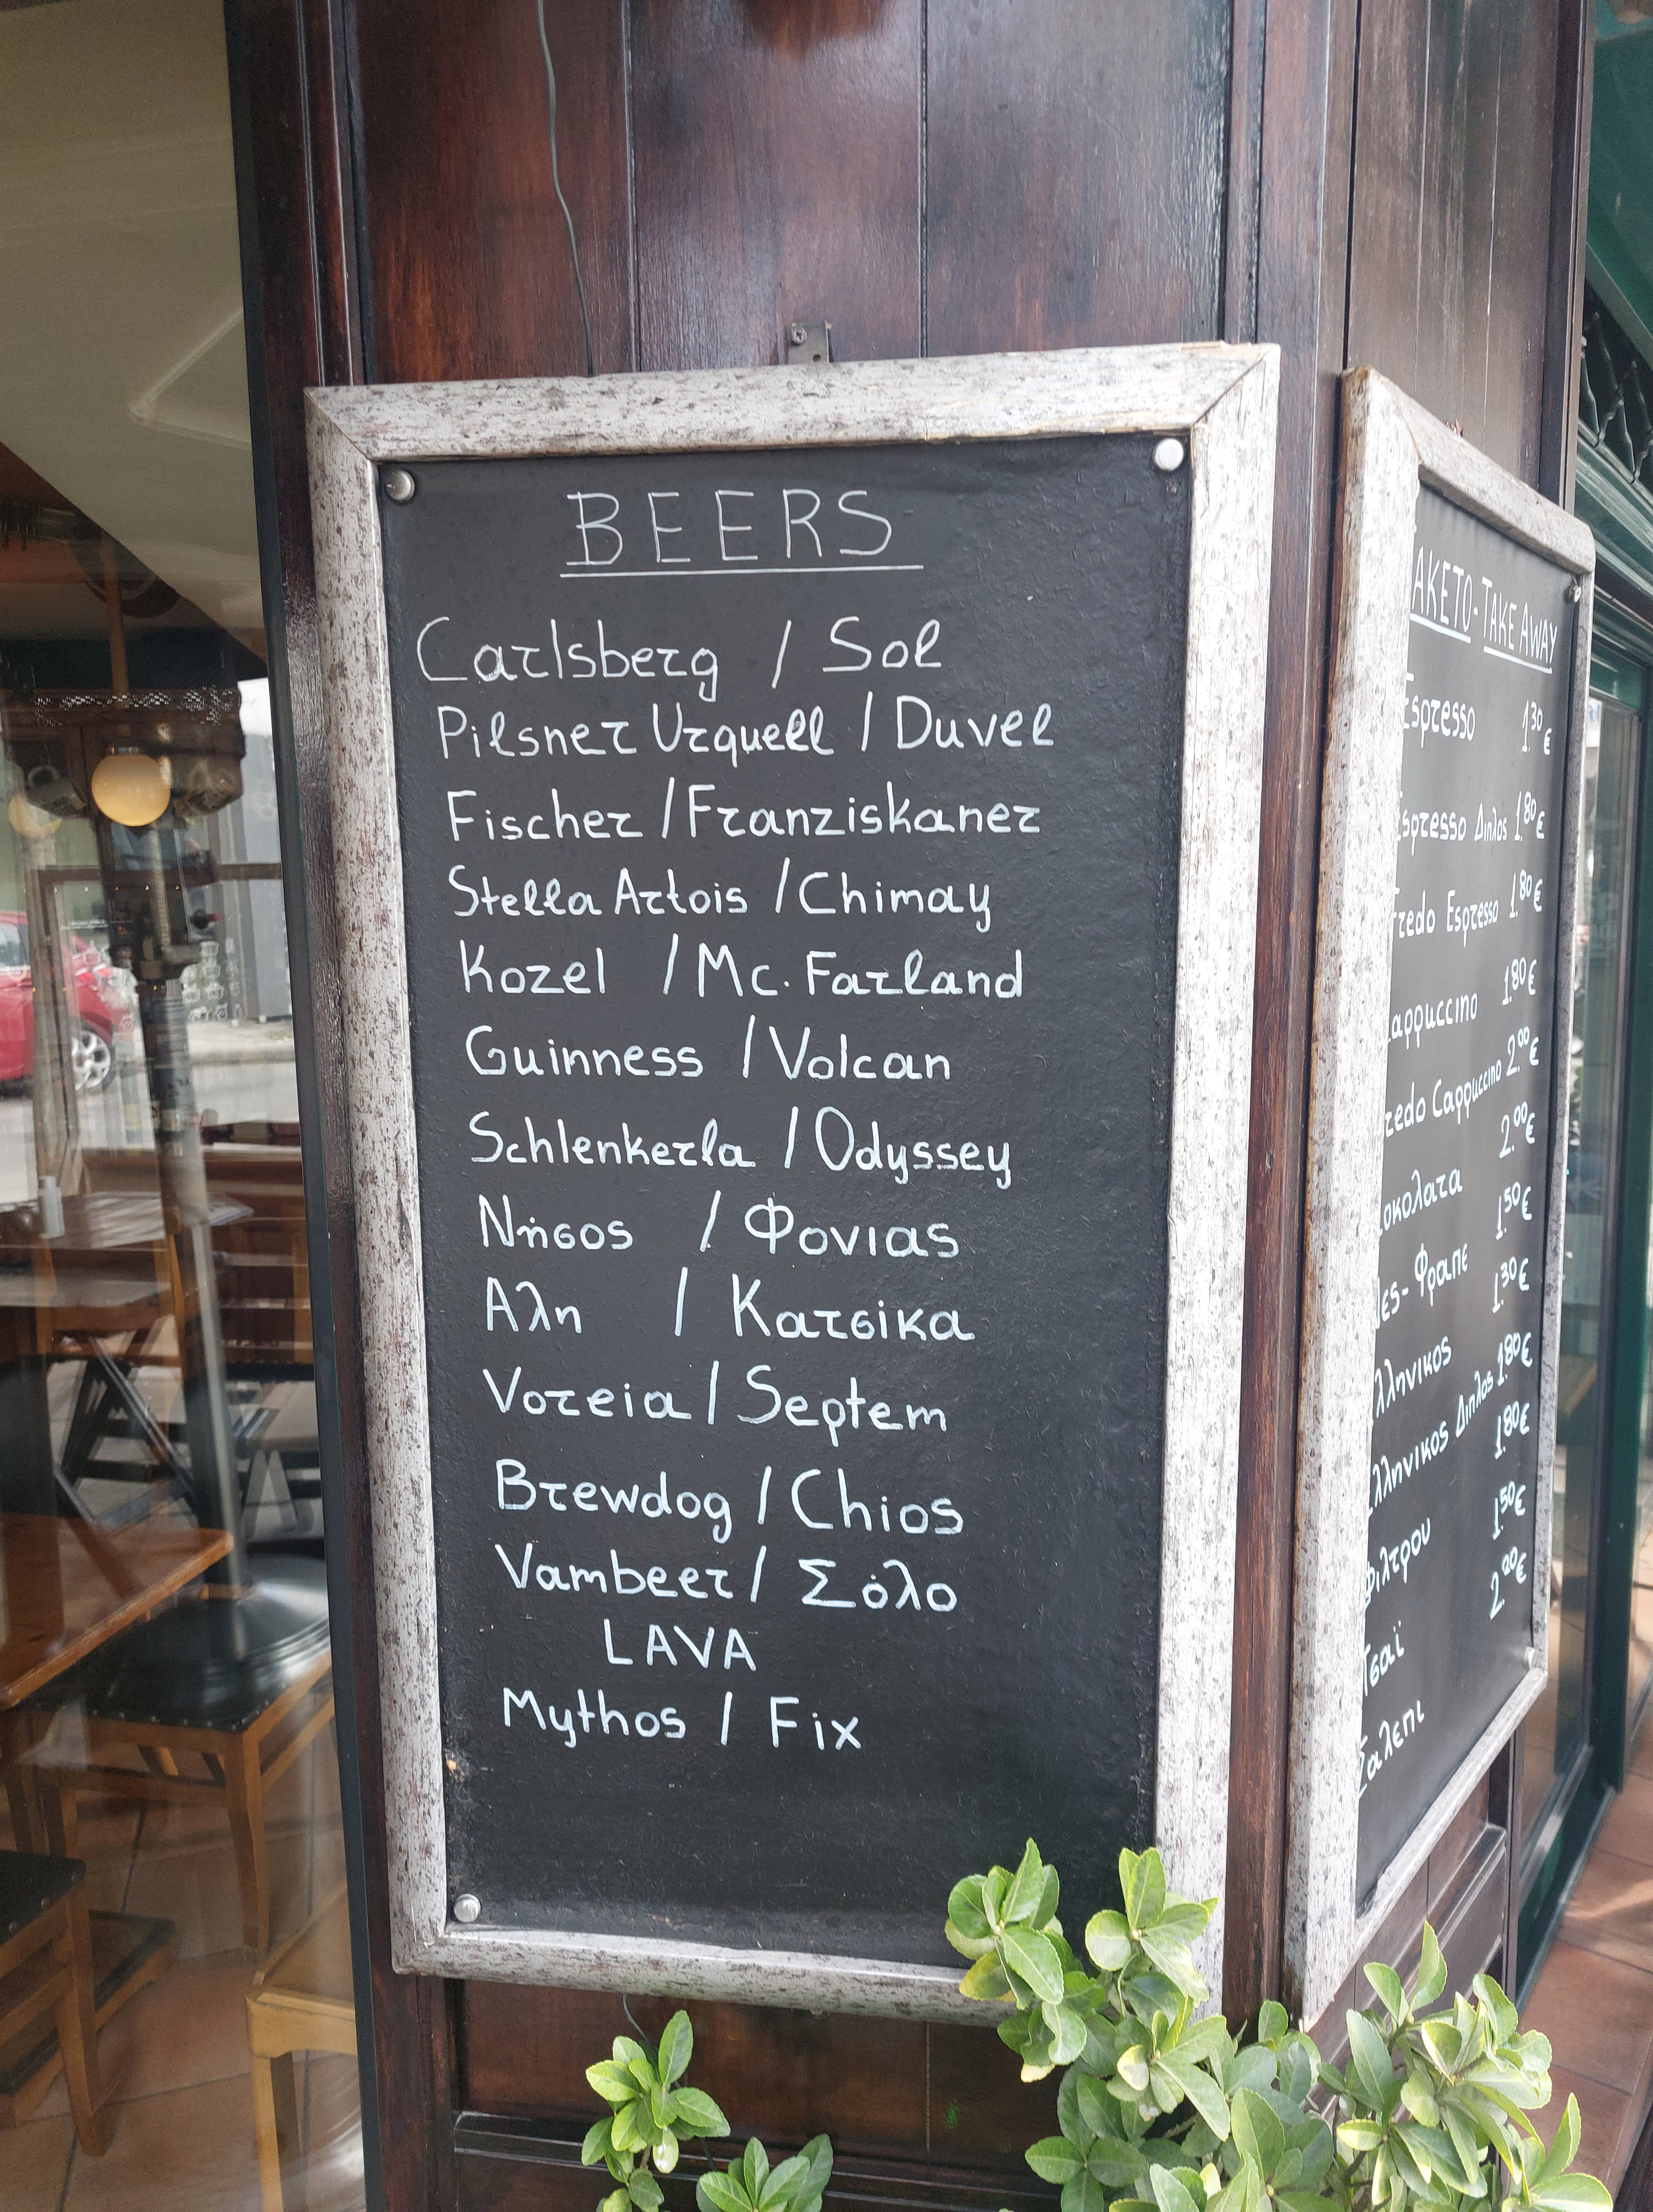 BEERS
Carlsberg / Sol
Pilsner Urquell / Duvel
Fischer / Franziskaner
Stella Artois / Chimay
Kozel / Mc. Farland
Guinness / Volcan
Schlenkerla / Odyssey
Νήσος / Φονιας
Αλη / Κατσίκα
Voreia / Septem
Brewdog / Chios
Vambeer / Σόλο
LAVA
Mythos / Fix
ΑΚΕΤΟ - TAKE AWAY
Espresso 1.30€
Espresso Διπλος 1.80€
Fredo Espresso 1.80€
appuccino 1.80€
redo Cappuccino 2.00€
οκολατα 2.00€
ες - Φραπε 1.50€
λληνικος 1.30€
λληνικος Διπλος 1.80€
Φιλτρου 1.80€
Τσαϊ 1.50€
Σαλεπι 2.00€